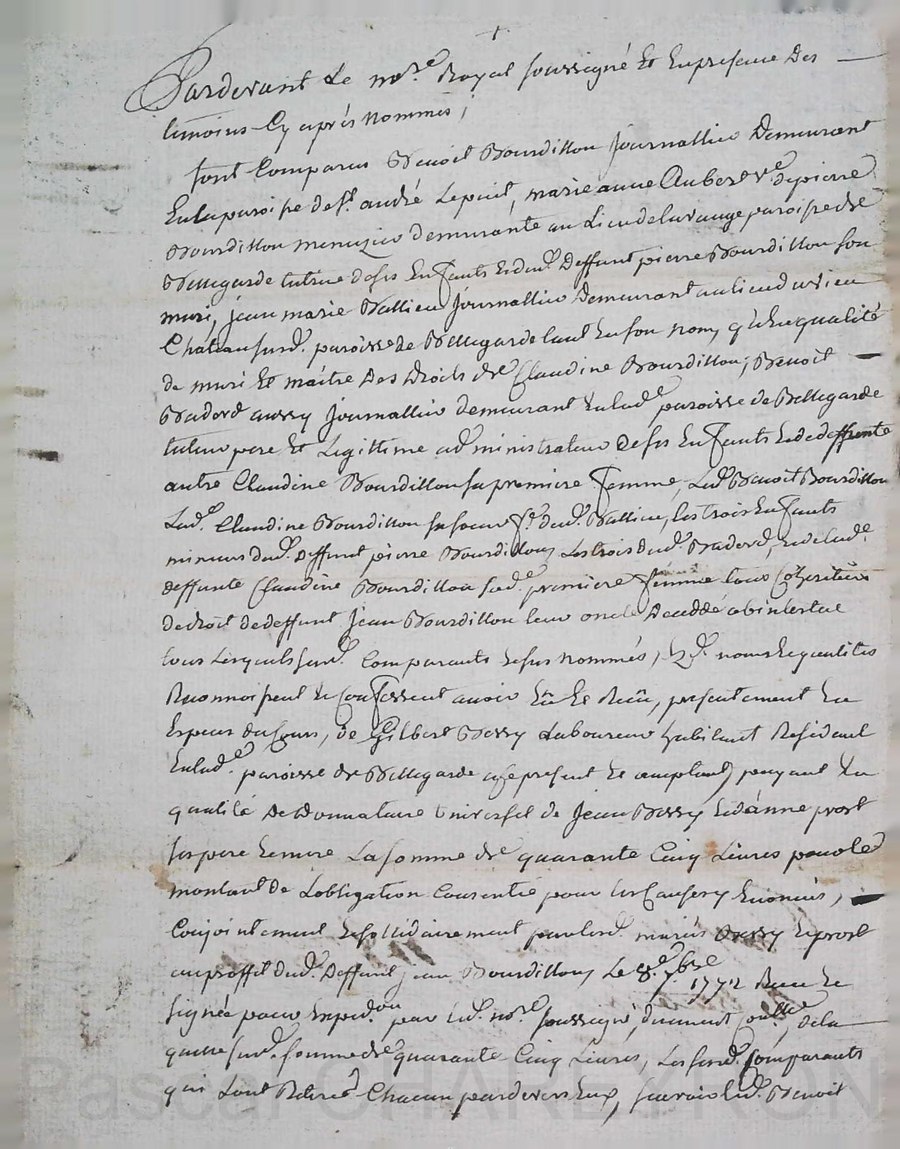 Pardevant Le no.re Royal soussigné Et Enpresence Des
temoins Cy après Nommés ;
sont Comparus Benoit Bourdillon Journallier Demeurant
En la paroisse de St. andré Lepuit, marie anne Aubert v.e depierre
Bourdillon menuzier demeurante au Lieu delarange paroisse de
Bellegarde tutrice deses Enfants Edud. Deffunt pierre Bourdillon son
mari, jean marie Vallieu Journallier Demeurant aulieu duvieu
Chateau surd. paroisse de Bellegarde tant En son nom, qu'En qualité
de mari Et maitre Des droits de Claudine Bourdillon ; Benoit
Badord aussy Journallier demeurant Enlad.e paroisse de Bellegarde
tuteur pere Et Legittime administrateur deses Enfants Ededeffunte
autre Claudine Bourdillon sa premiere femme, Led. Benoit Bourdillon
Lad.e Claudine Bourdillon sa soeur f.e dud. Vallieu, Les trois Enfants
mineurs dud. Deffunt pierre Bourdillon, Les trois dud. Badord, Edelad.e
deffunte Claudine Bourdillon sad.e premiere femme tous Cohéritiers
dedroit dedeffunt Jean Bourdillon leur oncle Decedé abintestat
tous Lesquels surd. Comparants Cesus nommés, Esd. noms Equalités
Reconnoissent Et Confessent avoir Eû Et Reçû, presentement En
Especes du Cours, de Gilbert Bessy Laboureur habitant Residant
Enlad.e paroisse de Bellegarde cy present Et acceptant, payant En
qualité De Donnataire Universel de Jean Bessy Ed'anne prost
ses pere Et mere La somme de quarante Cinq Livres pour le
montant de L'obligation Consentie pour les Causes y Enoncées,
Conjointement Esollidairement par lesd. mariés Bessy Eprost
auproffit dud. Deffunt Jean Bourdillon, Le 8.e 7.bre 1772 Reçue Et
signée pour Expedi.on par Led. no.re soussigné, duement Con.llée, dela
quelle surd. somme de quarante Cinq Livres, Les surd. Comparants
qui L'ont Retirée Chacun pardevers Eux, sçavoir Led. Benoit